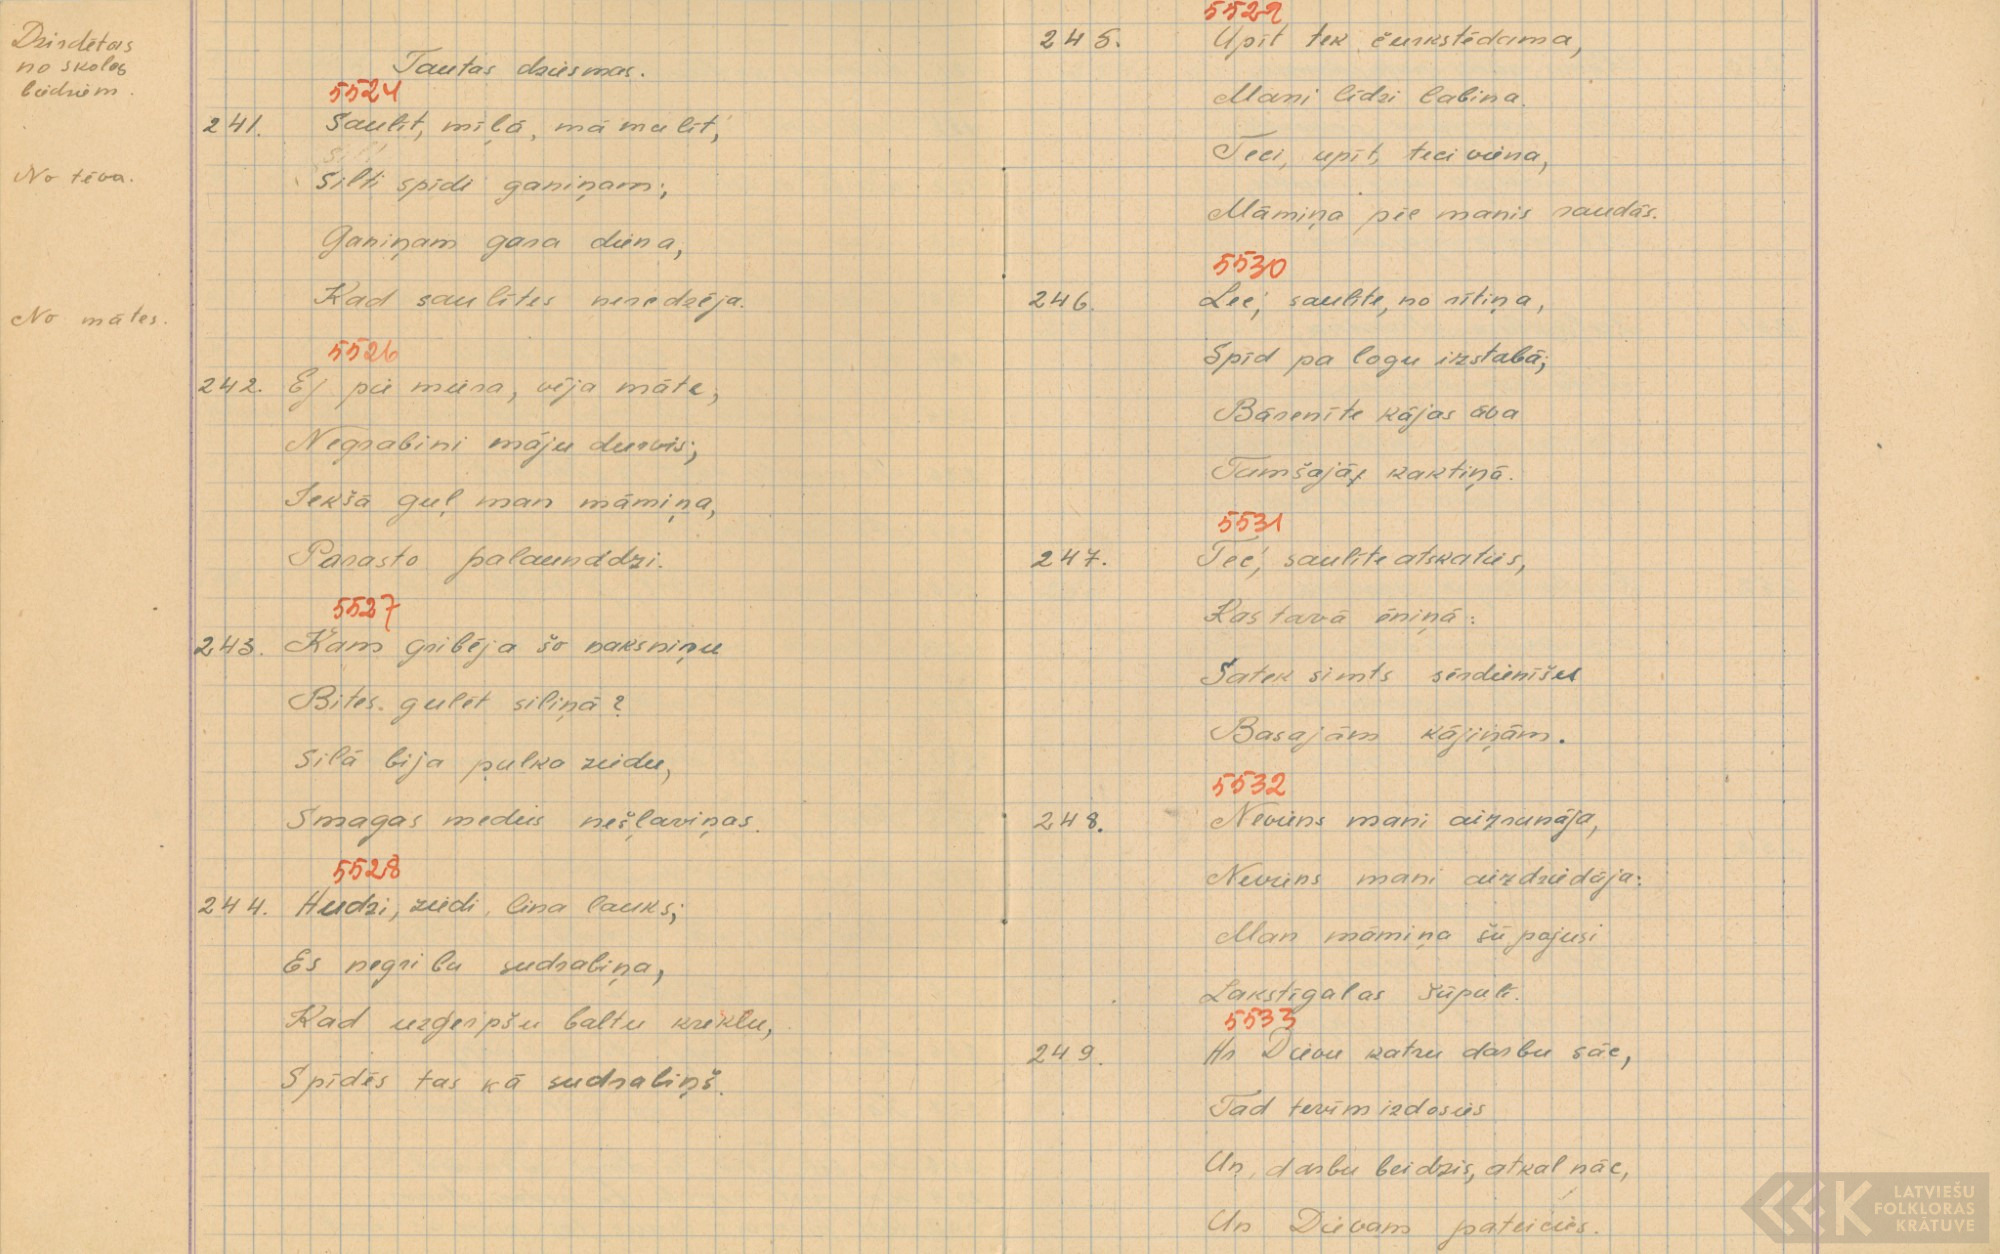 Dzirdētas
no skolas
biedriem.
No tēva.
No mātes.
Tautas dziesmas.
5524
241. Saulīt, mīļā, māmulīt,
Silti spīdi ganiņam;
Ganiņam gara diena,
Kad saulītes neredzēja.
5526
242. Ej pie miera, vēja māte,
Negrabini māju durvis;
Iekšā guļ man māmiņa,
Parasto palaunddzi.
5527
243. Kam gribēja šo naksniņu
Bites gulēt siliņā?
Silā bija pulka ziedu,
Smagas medus nešļaviņas.
5528
244. Audzi, ziedi, lina lauks;
Es negribu sudrabiņa,
Kad uzģerpšu baltu kreklu,
Spīdēs tas kā sudrabiņš.
5529
245. Upīt tek čurkstēdama,
Mani līdzi labina.
Teci, upīt, teci viena,
Māmiņa pēc manis raudās.
5530
246. Lec, saulīte, no rītiņa,
Spīd pa logu izstabā;
Bārenīte kājas āva
Tumšajā kaktiņā.
5531
247. Tec, saulīte atskaties,
Kas tavā ēniņā:
Satek simts sērdienīšu
Basajām kājiņām.
5532
248. Neviens mani aizrunāja,
Neviens mani aizdziedāja:
Man māmiņa šūpojusi
Lakstīgalas šūpulī.
5533
249. Ar Dievu katru darbu sāc,
Tad tevīm izdosies
Un, darbu beidzis, atkal nāc,
Un Dievam pateicies.
LATVIEŠU
FOLKLORAS
KRĀTUVE